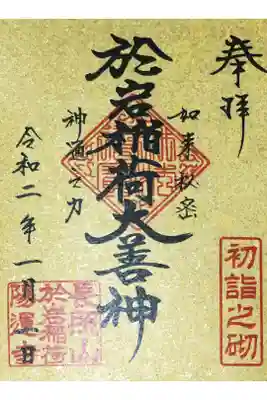 奉拝
如来秘密
於岩稲荷大善神
神通之力
令和二年一月一日
初詣之砌
長照山
於岩稲荷
陽運寺